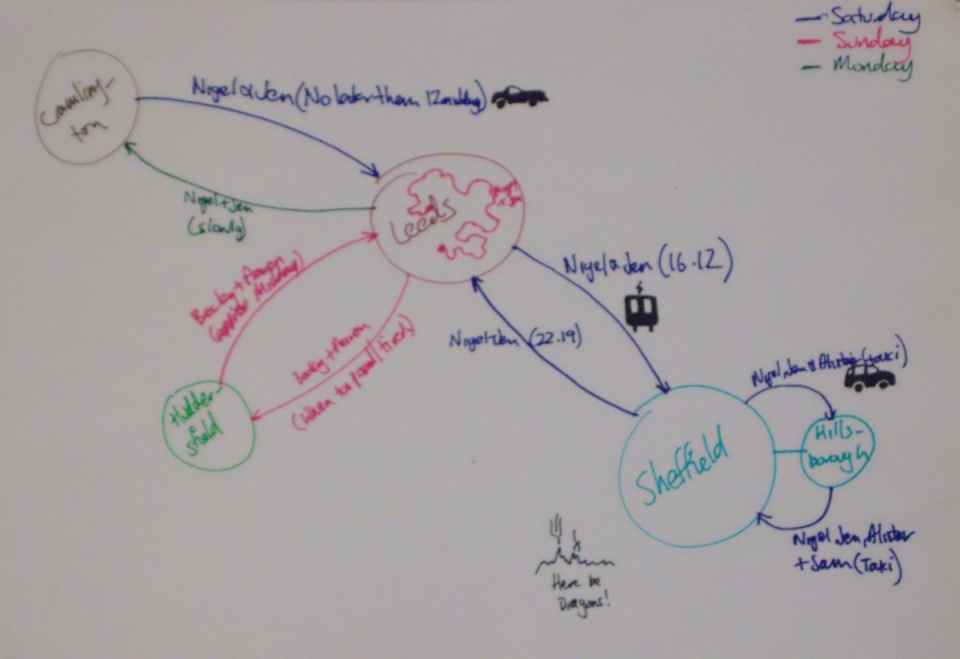 Saturday
Sunday
Monday
Nigel & Jen (No later than
ton
Leeds
Nigel + Jen
(Slowly)
Becky + Aaron
(after Midday)
Becky + Aaron
(When tired)
Nigel & Jen (16.12)
Nigel + Jen (22.19)
Hudder-
sfield
Sheffield
Nigel, Jen & Alistair (taxi)
Hills-
borough
Nigel Jen, Alistair
+ Sam (Taxi)
Here be
Dragons!